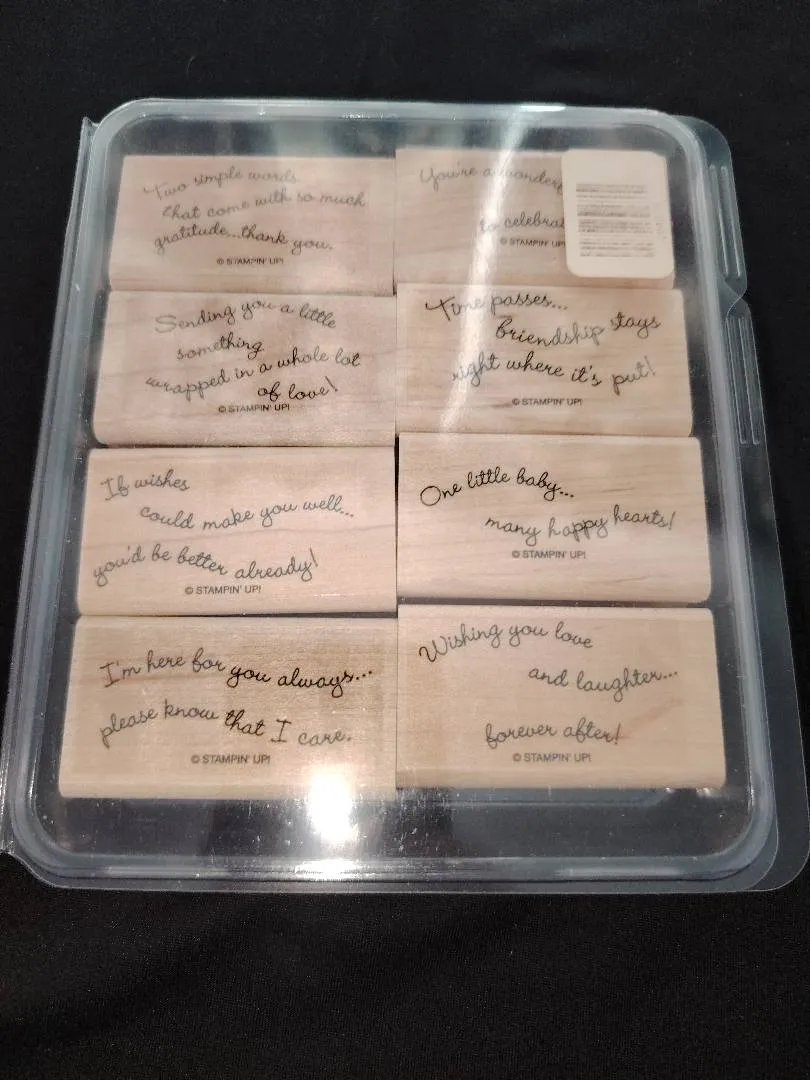 Two simple words
that come with so much
gratitude...thank you.
© STAMPIN' UP!
You're a
to
© STAMPIN' UP!
Sending you a little
something
wrapped in a whole lot
of love!
© STAMPIN' UP!
Time passes...
friendship stays
right where it's put!
© STAMPIN' UP!
If wishes
could make you well...
you'd be better already!
© STAMPIN' UP!
One little baby...
many happy hearts!
© STAMPIN' UP!
I'm here for you always...
please know that I care.
© STAMPIN' UP!
Wishing you love
and laughter...
forever after!
© STAMPIN' UP!